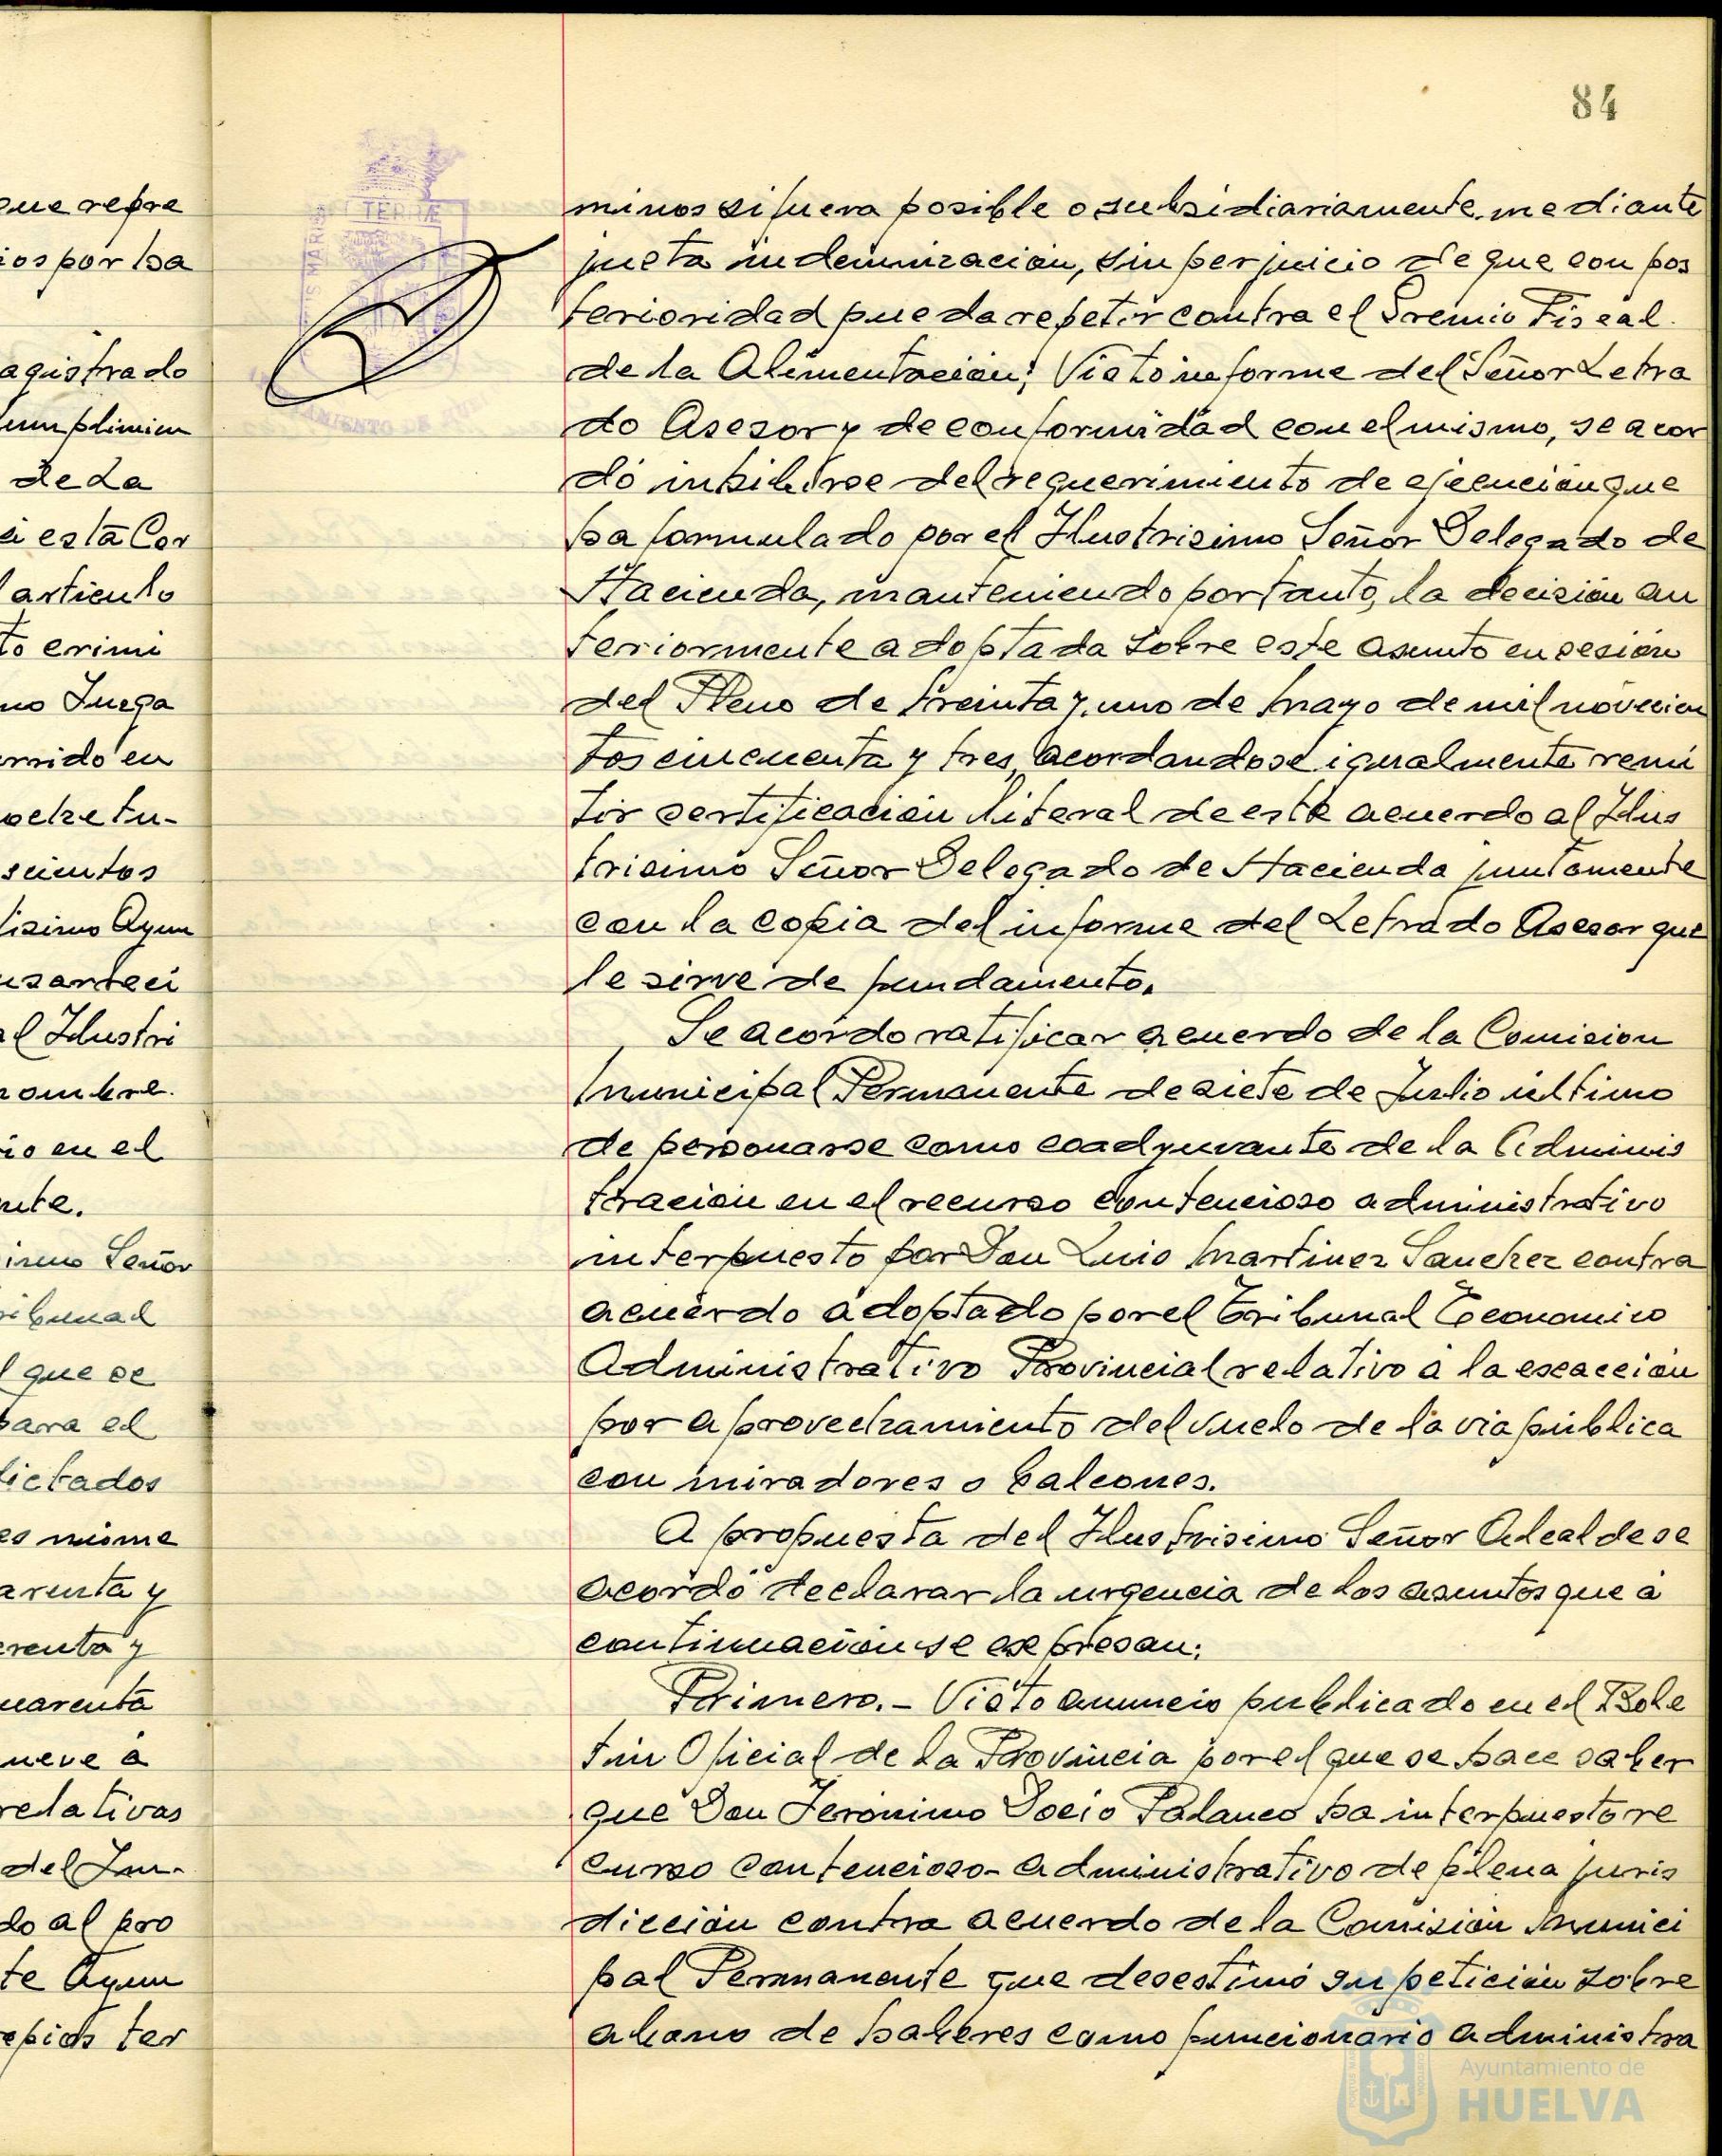 84
que repre
ios por ha
agistrado
cumplimien
de La
á esta Cor
l articulo
to crimi
no Juzga
rrido en
ochetu-
scientos
lisimo Ayun
usarteci
al Ilustri
nombre.
io en el
nte.
isimo Señor
ribunal
l que se
para el
dictados
es misme
arenta y
renta y
uarenta
nueve á
relativas
del Im-
do al pro
te Ayun
opios ter
TERRÆ
minos si fuera posible o subsidiariamente, mediante
justa indemnizacion, sin perjuicio de que con pos
terioridad pueda repetir contra el Gremio Fiscal
de la Alimentacion; Visto informe del Señor Letra
do Asesor y de conformidad con el mismo, se acor
dó inhibirse del requerimiento de ejecucion que
ha formulado por el Ilustrisimo Señor Delegado de
Hacienda, manteniendo por tanto, la decision an
teriormente adoptada sobre este asunto en sesion
del Pleno de treinta y uno de Mayo de mil novecien
tos cincuenta y tres, acordandose igualmente remi
tir certificacion literal de este acuerdo al Ilus
trisimo Señor Delegado de Hacienda juntamente
con la copia del informe del Letrado Asesor que
le sirve de fundamento.
Se acordo ratificar acuerdo de la Comision
Municipal Permanente de siete de Julio ultimo
de personarse como coadyuvante de la Adminis
tracion en el recurso contencioso administrativo
interpuesto por Don Luis Martinez Sanchez contra
acuerdo adoptado por el Tribunal Economico
Administrativo Provincial relativo á la escaccion
por aprovechamiento del vuelo de la via pública
con miradores o balcones.
A propuesta del Ilustrisimo Señor Alcalde se
acordó declarar la urgencia de los asuntos que á
continuacion se expresan:
Primero.- Visto anuncio publicado en el Bole
tin Oficial de la Provincia por el que se hace saber
que Don Jeronimo Socio Palanco ha interpuesto re
curso contencioso-administrativo de plena juris
diccion contra acuerdo de la Comision Munici
pal Permanente que desestimó su peticion sobre
abono de haberes como funcionario administra
Ayuntamiento de
HUELVA